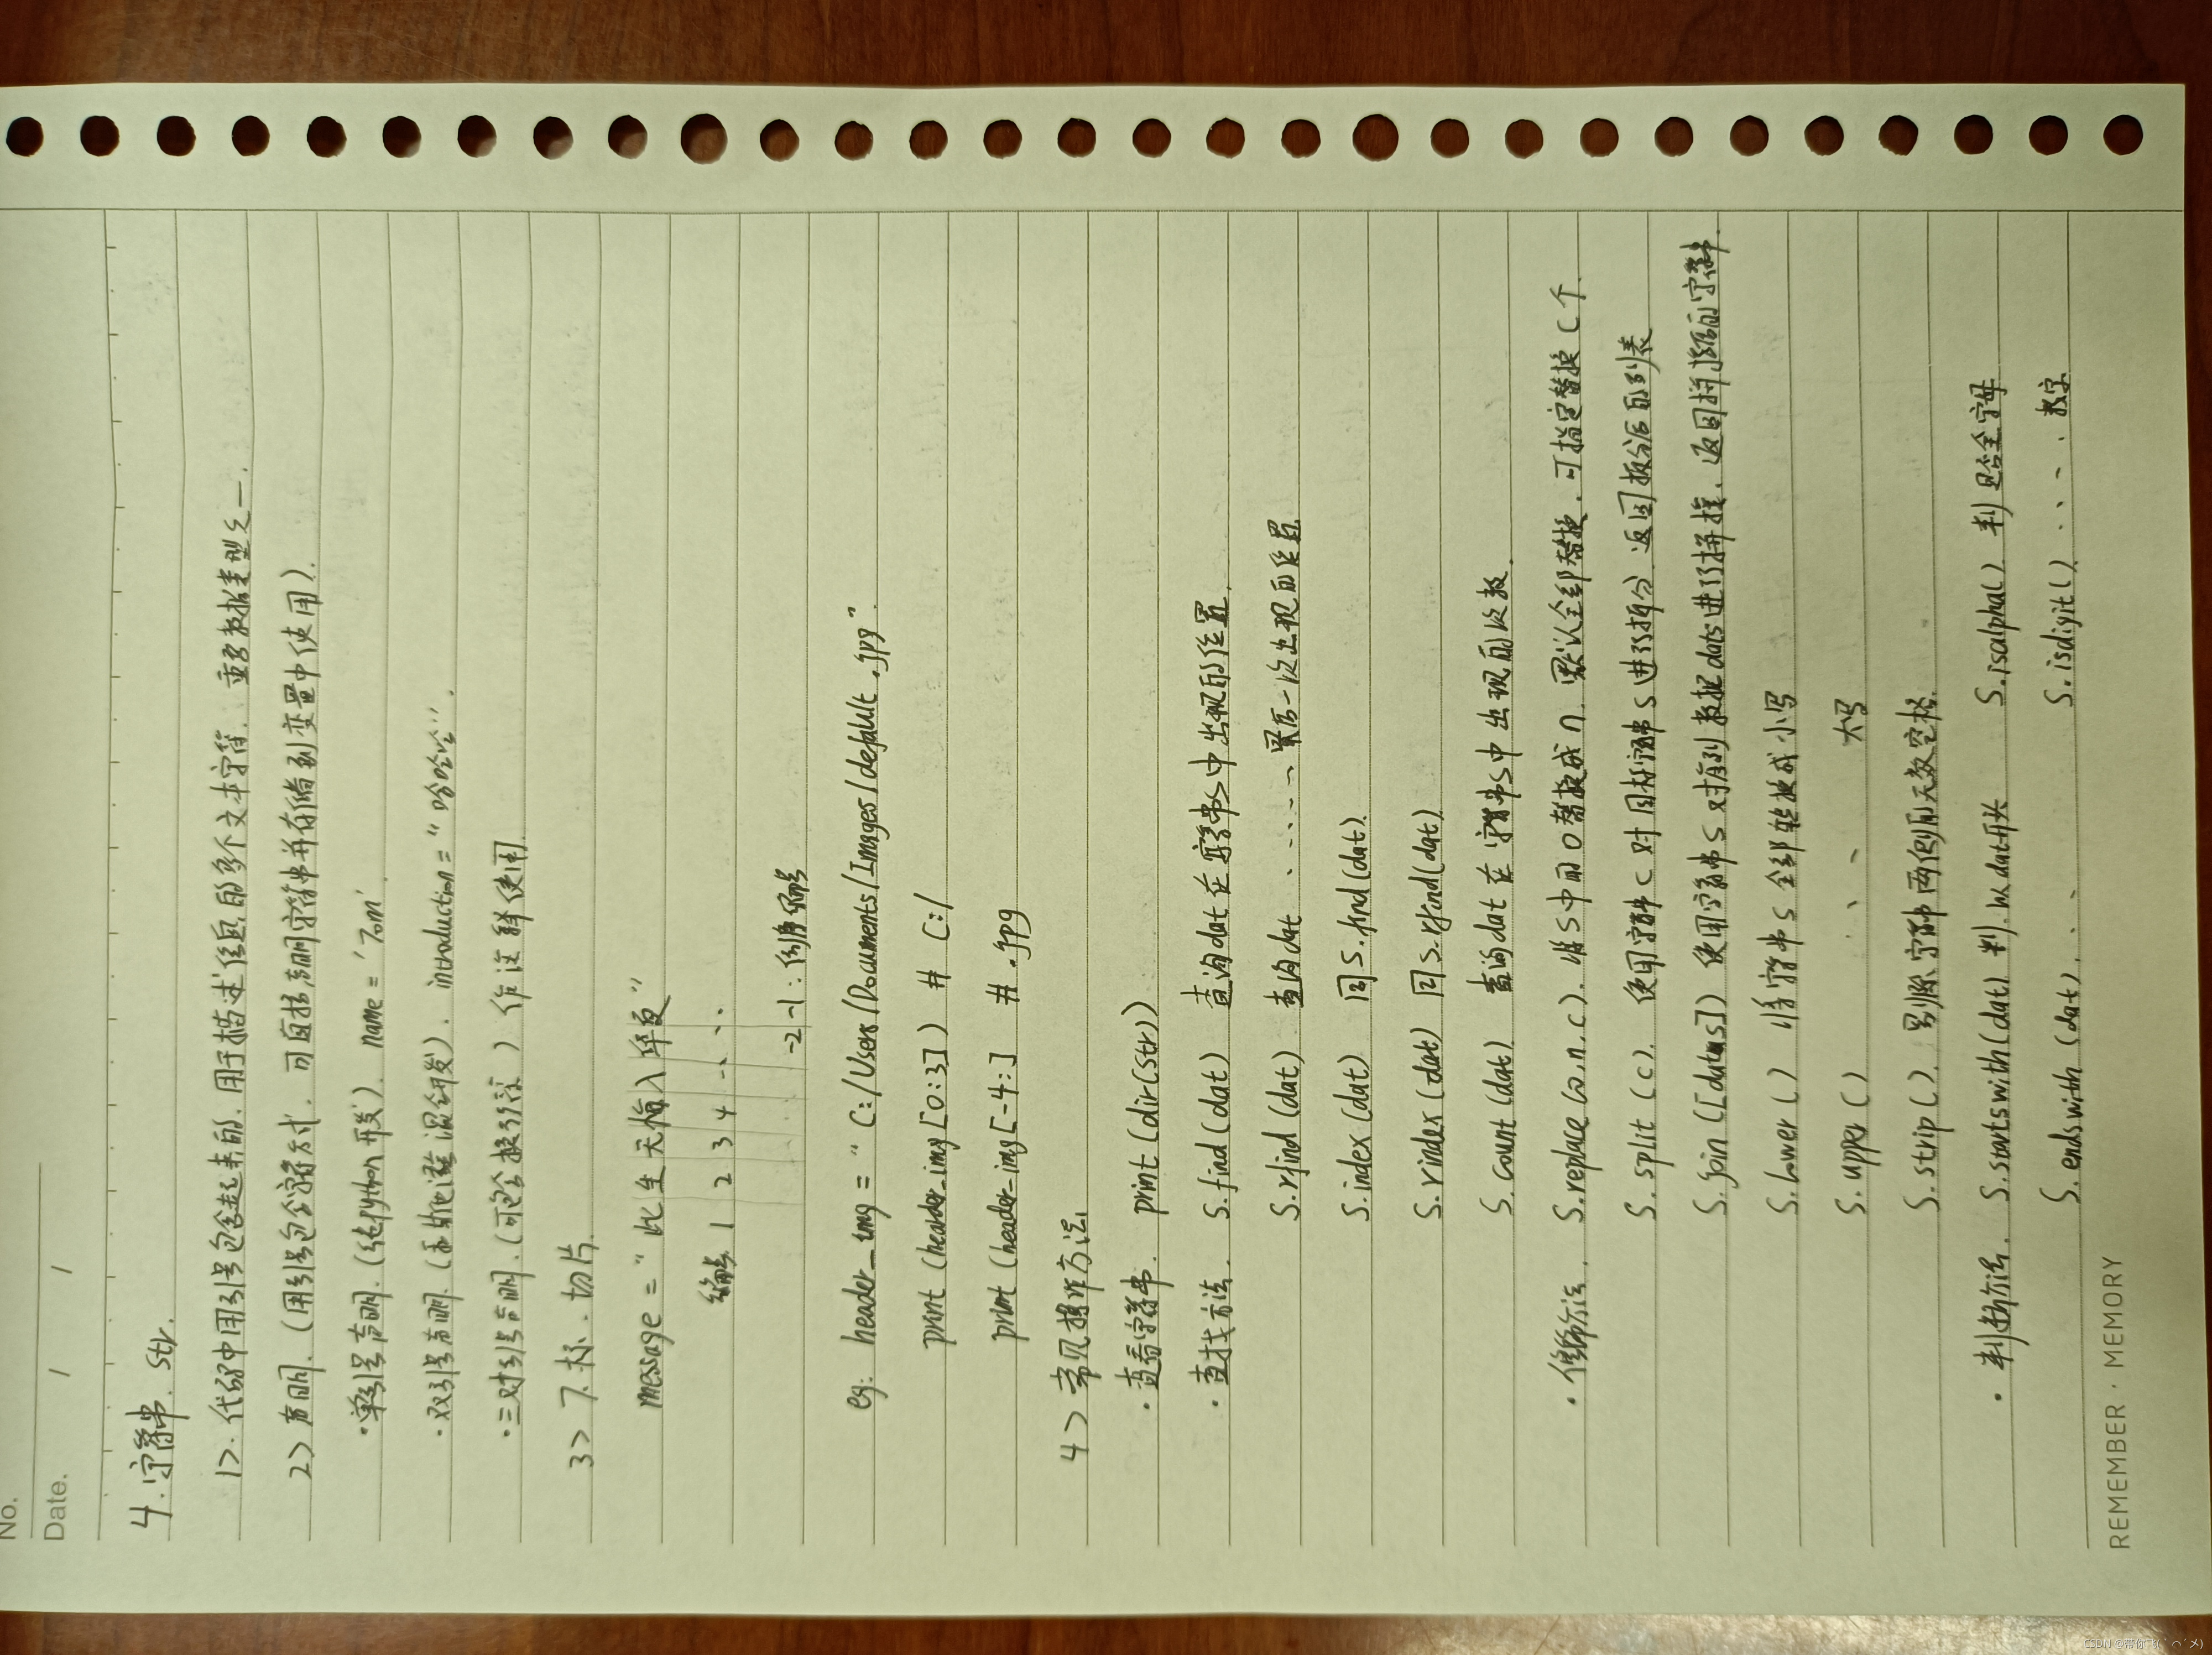 No.
Date. / /
4.字符串. str.
1>. 代码中用引号包含起来的.用于描述信息的多个文本字符. 重要数据类型之一.
2> 声明. (用引号包含字符方式. 可直接声明字符串并存储到变量中使用).
·单引号声明.(纯python开发). name = 'Tom'.
·双引号声明.(
混合研发). introduction = "哈哈哈".
·三对引号声明.(可包含换行符) 作注释使用.
3> 下标.切片.
message = "此生无悔入华夏"
编号 1 2 3 4 ...
-2 -1: 倒序编号
eg: header_img = "C:/Users/Documents/Images/default.jpg".
print (header_img[0:3]) # C:/
print (header_img[-4:] # .jpg
4> 常见操作方法.
·查看字符串. print(dir(str))
·查找方法. S.find(dat) 查询dat在字符串S中出现的位置.
S.rfind(dat) 查询dat 、、、、、最后一次出现的位置
S.index(dat) 同S.find(dat).
S.rindex(dat) 同S.rfind(dat)
S.count(dat) 查询dat在字符串S中出现的次数.
·修饰方法. S.replace(o,n,c). 将S中的o替换成n. 默认全部替换. 可指定替换c个.
S.split(c). 使用字符串c对目标字符串S进行拆分.返回拆分后的列表
S.join([datas]) 使用字符串S对序列数据dats进行拼接. 返回拼接后的字符串.
S.lower() 将字符串S全部转换成小写
S.upper() 、、、 大写
S.strip(). 删除字符串两侧的无效空格.
·判断方法. S.startswith(dat) 判.以dat开头 S.isalpha() 判是否全字母
S.endswith(dat). 、、 S.isdigit() 、、、、数字
REMEMBER · MEMORY